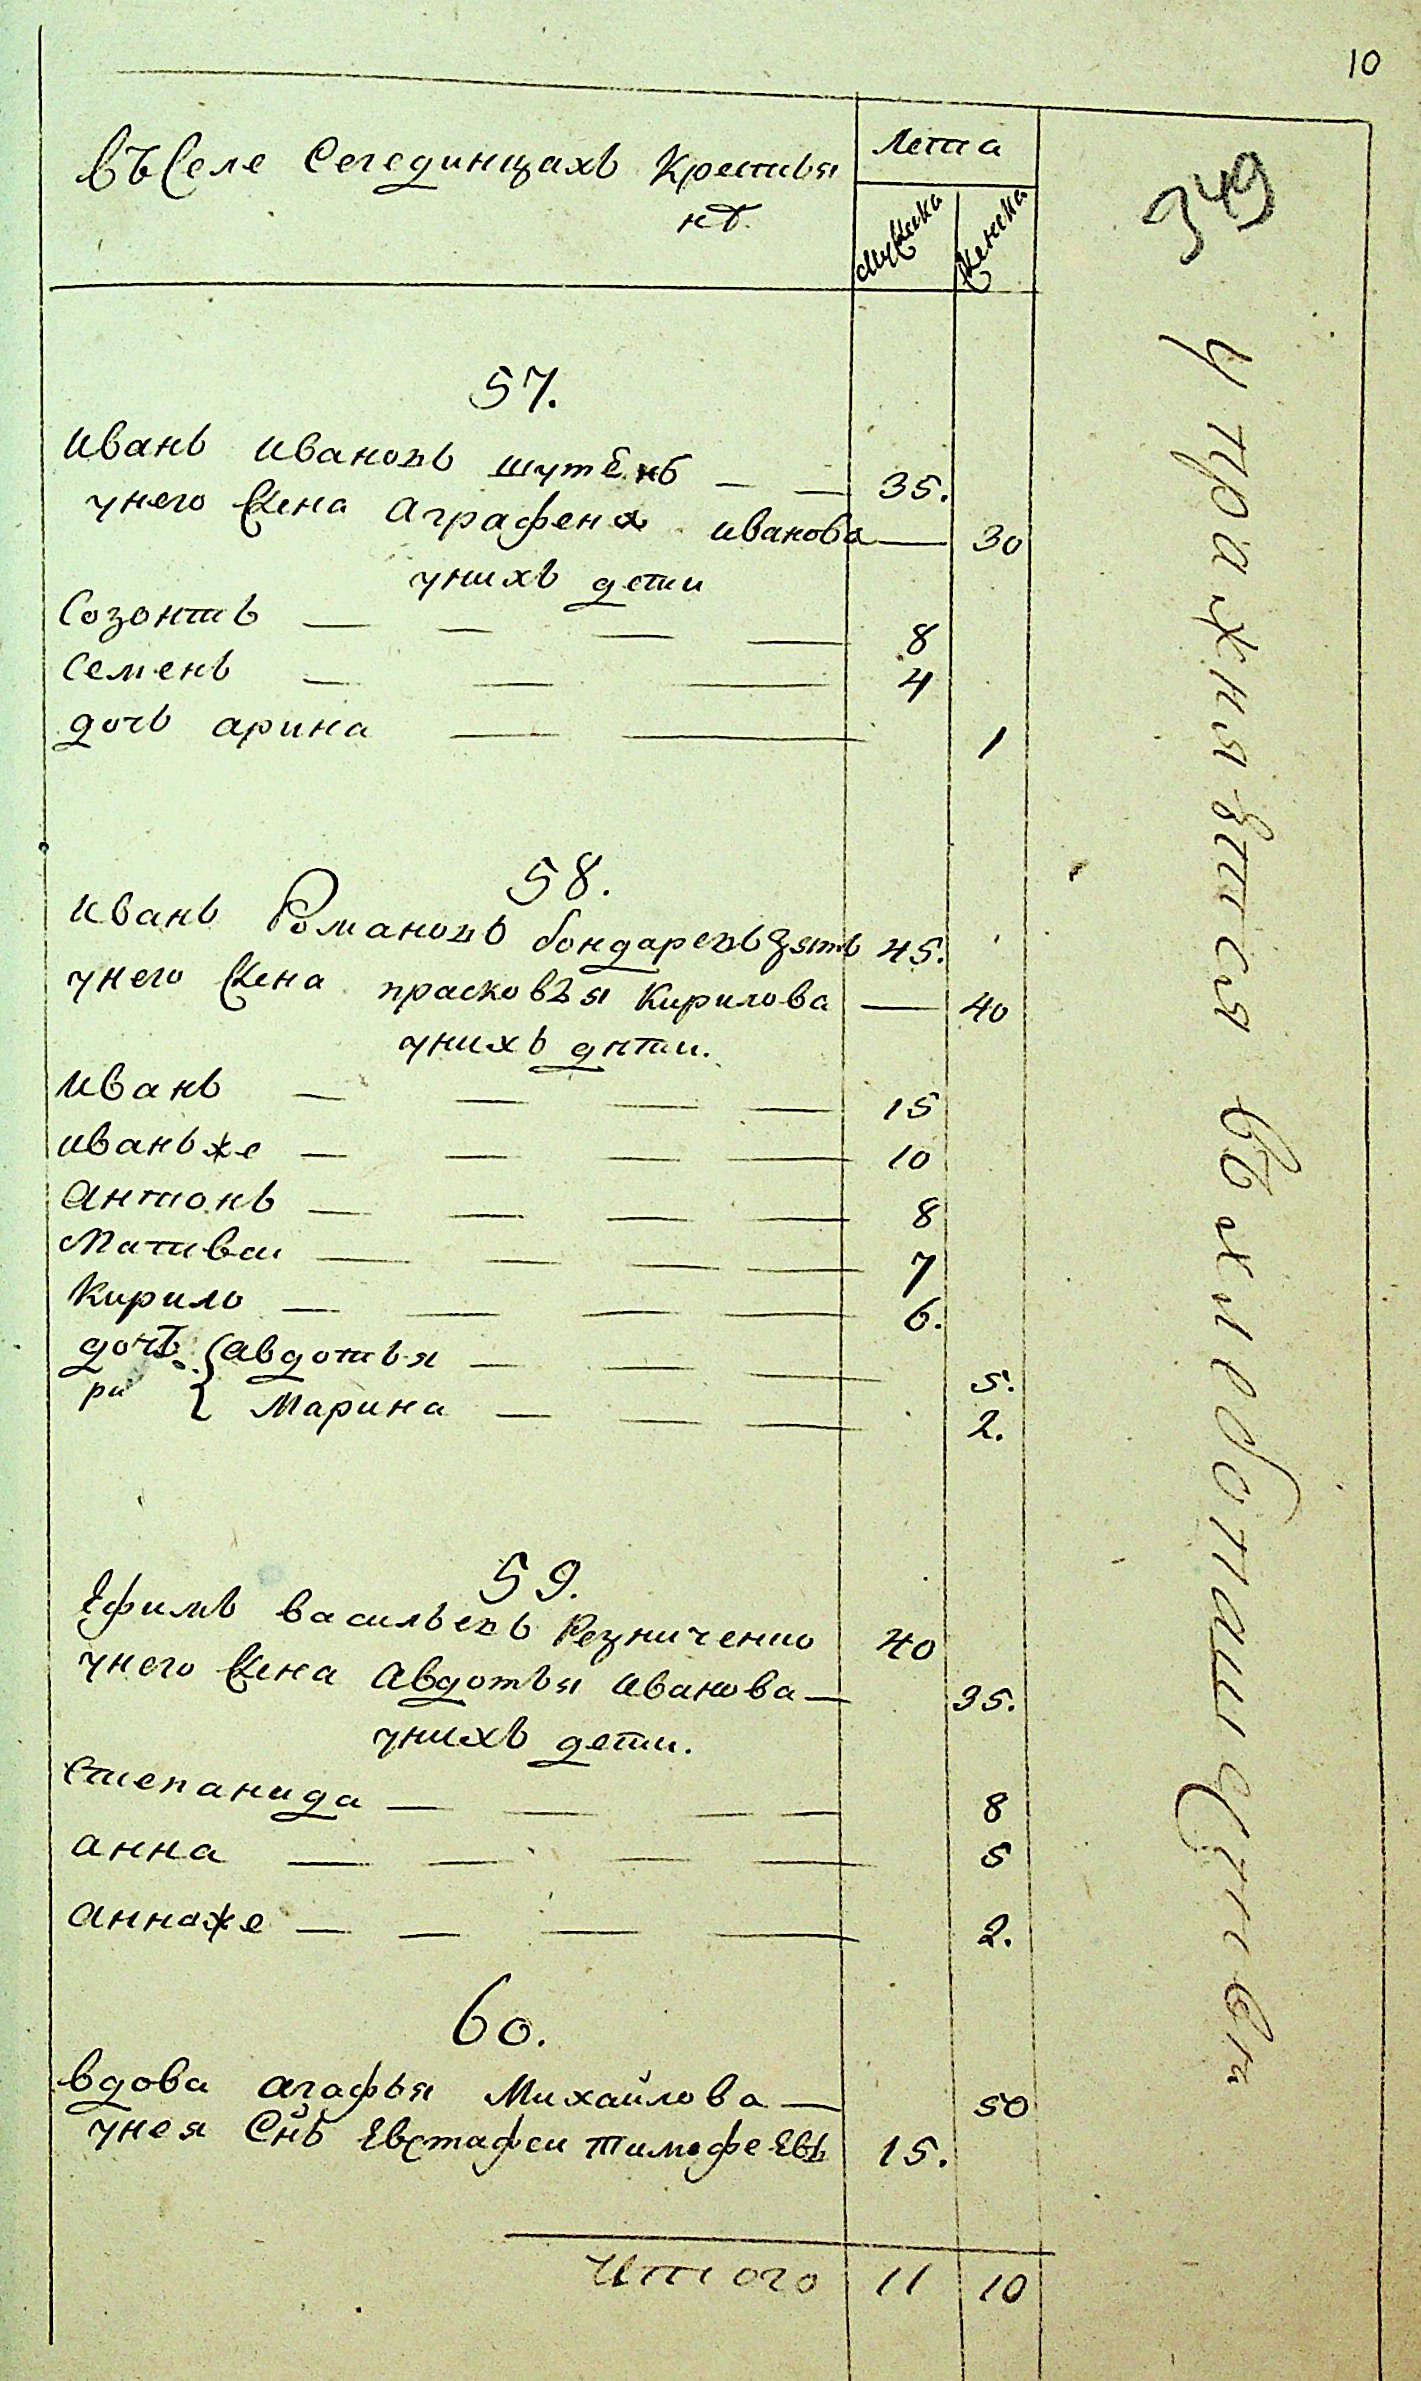 10
349
въ Селе Сегединцахъ Крестья
нъ.
Лета
Мужска
Женска
57.
иванъ ивановъ шутенъ 35.
унего жена Аграфена иванова 30
унихъ дети
Созонтъ 8
Семенъ 4
дочь арина 1
58.
иванъ Романовъ бондаревъ зять 45.
унего жена прасковъя Кирилова 40
унихъ дети.
иванъ 15
иванъже 10
Антонъ 8
Мативеи 7
Кирило 6.
дочѣ {авдотья 5.
ри { Марина 2.
59.
Ефимъ васильевъ Резниченко 40
унего жена Авдотья иванова 35.
унихъ дети.
Степанида 8
анна 5
аннаже 2.
60.
вдова агафья Михайлова 50
унея Снъ Евстафеи тимофеевъ 15.
Итого 11 10
упражняются въ хлебопашцустве